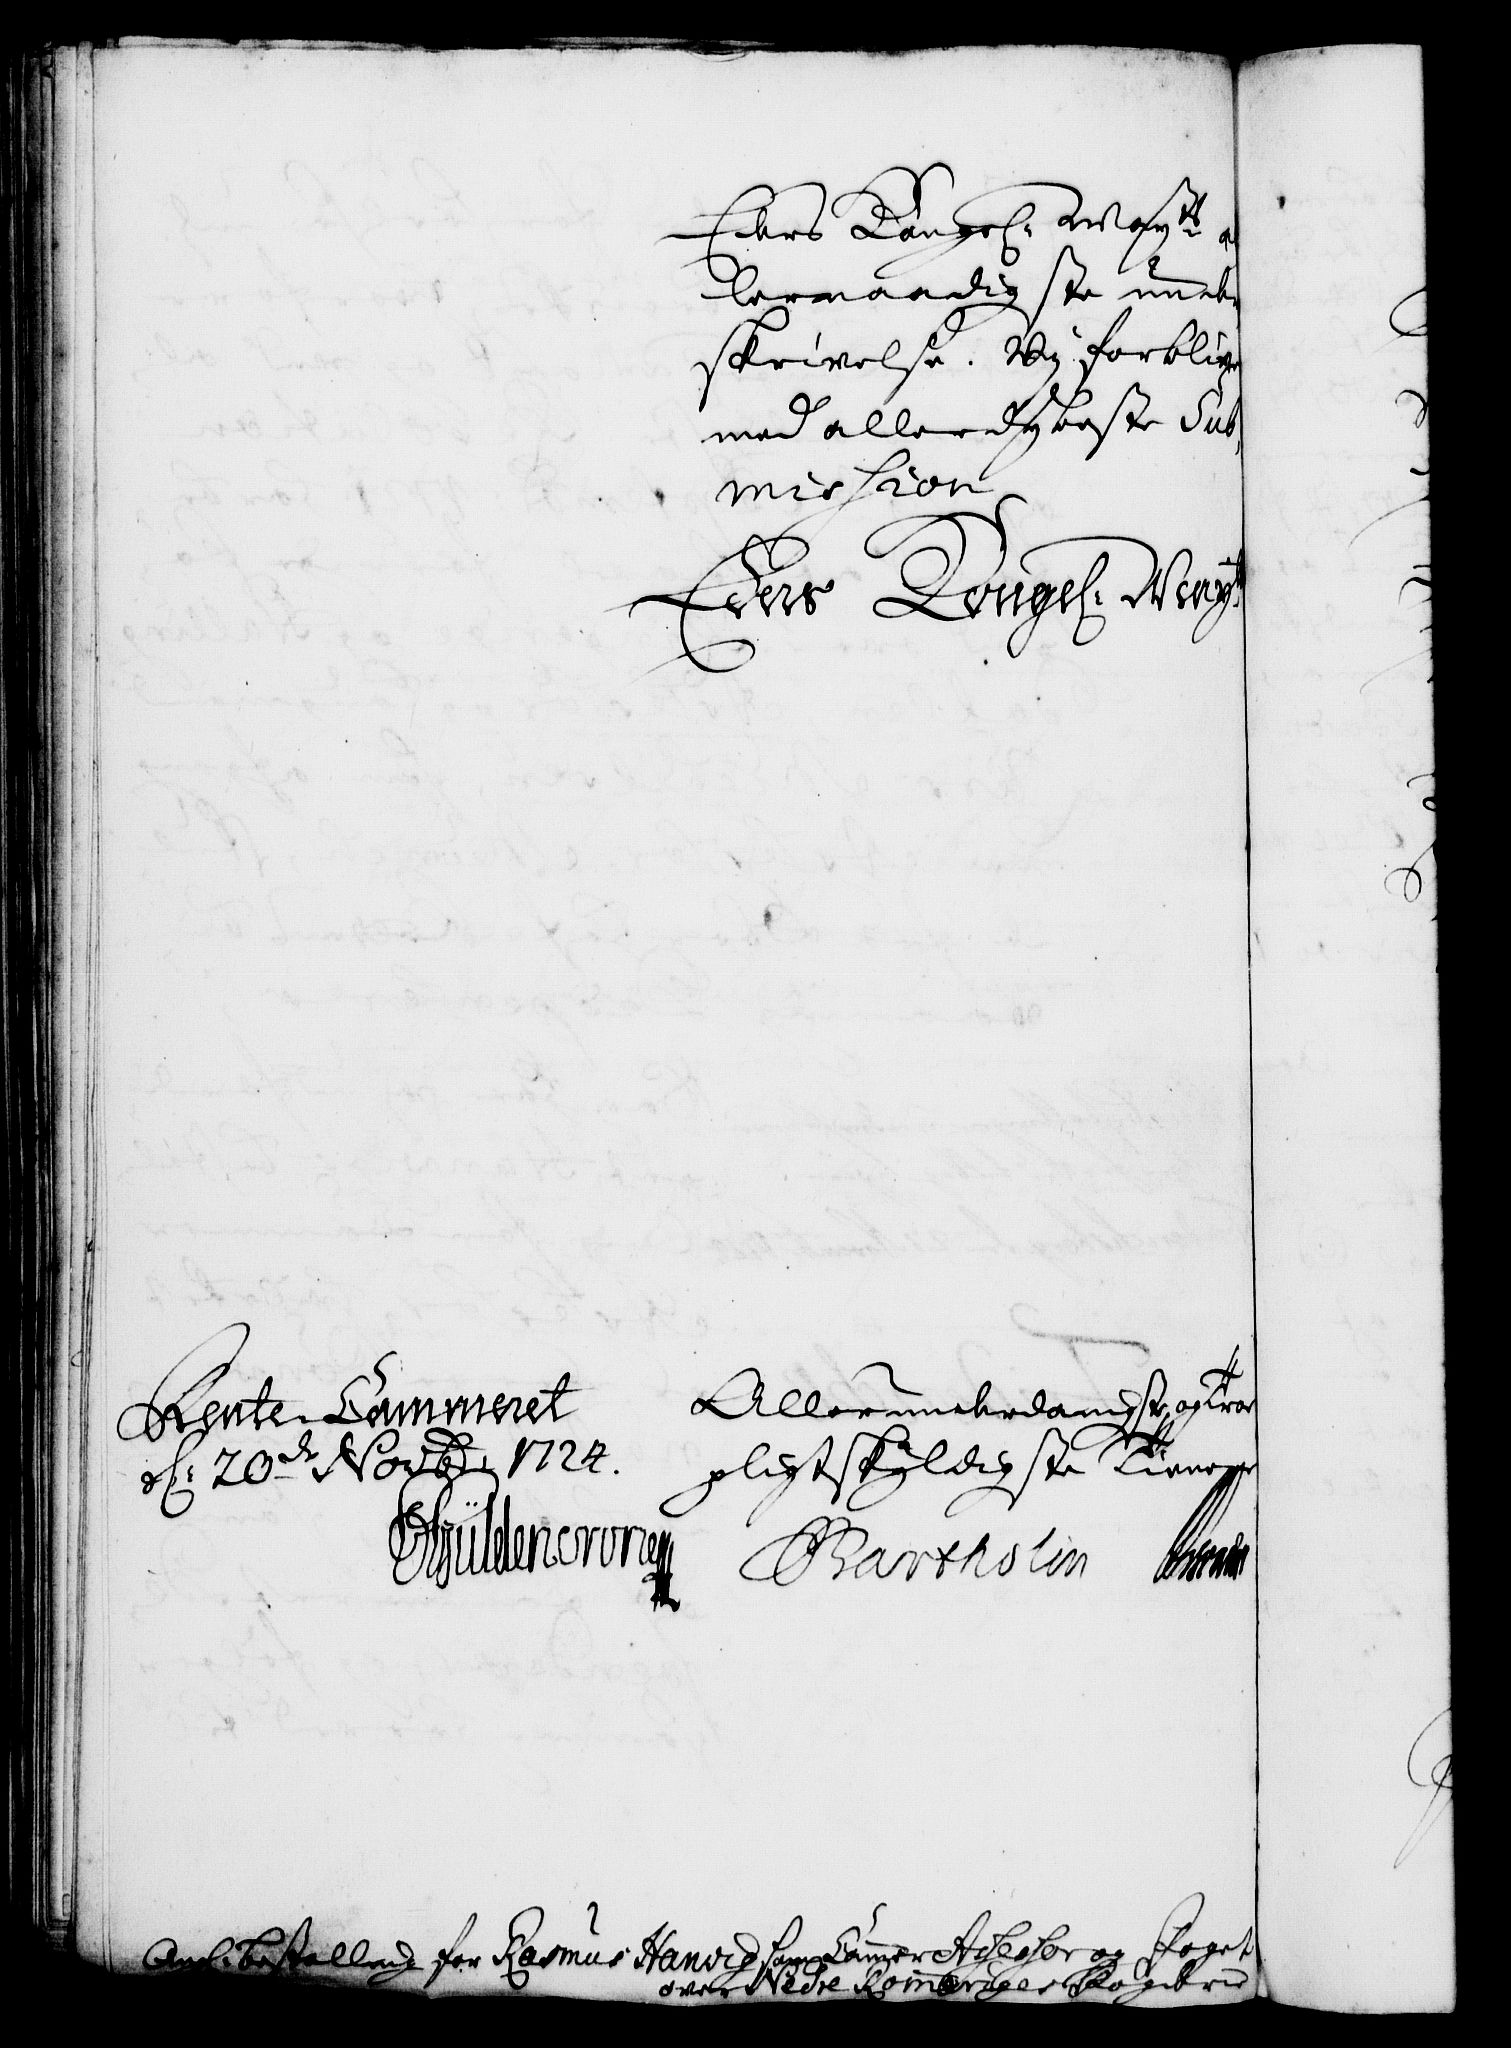 Eders Kongel: May:ts a
lernaadigste under
skrivelse. Vy forblive
med allerdybeste Sub,
mission
Eders Kongel: May:ts
Rente-Cammeret
d: 20de Novb: 1724.
Allerunderdanigste og troe
pligtskyldigste Tienere
Gÿldencrone
Bartholin
Anl: bestalling for Rasmus Hanvig som Cammer Assessor og Foget
over Nedre Rommeriges Fogderie